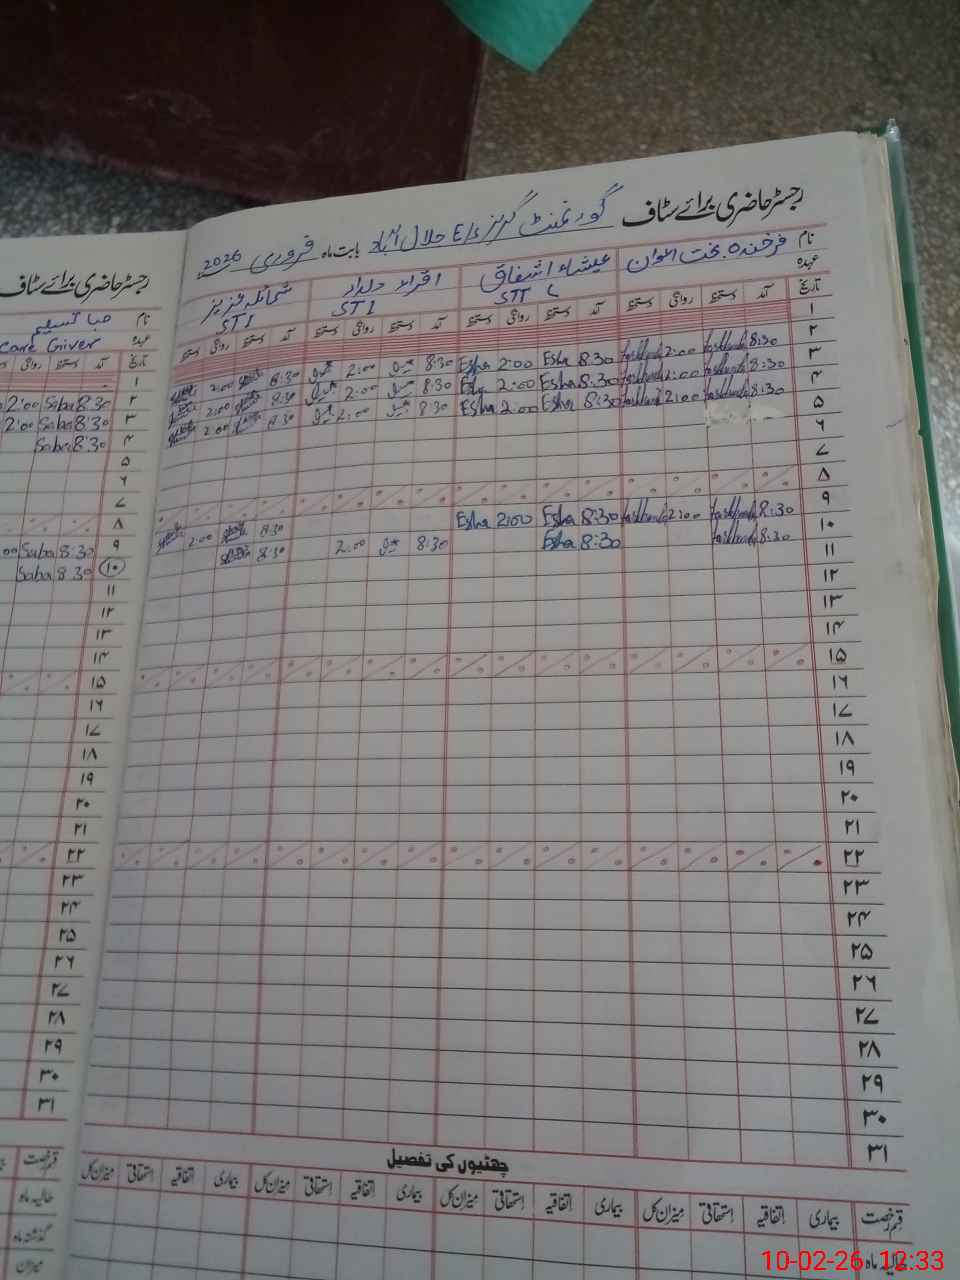 رجسٹر حاضری برائے سٹاف گورنمنٹ گرلز جلال آباد بابت ماہ فروری 2026
نام فرخندہ بخت اعوان عیشاء اشفاق اقراء شمائلہ عزیز
عہدہ STI STI
تاریخ آمد دستخط روانگی دستخط آمد دستخط روانگی دستخط آمد دستخط روانگی دستخط آمد دستخط روانگی دستخط
۱
۲ 8:30 2:00 Esha 8:30 Esha 2:00 8:30 2:00 8:30 2:00
۳ 8:30 2:00 Esha 8:30 Esha 2:00 8:30 2:00 8:30 2:00
۴ 8:30 2:00 Esha 8:30 Esha 2:00 8:30 2:00 8:30 2:00
۵
۶
۷
۸
۹ 8:30 2:00 Esha 8:30 Esha 2:00 8:30 2:00
۱۰ 8:30 Esha 8:30 8:30 2:00 8:30
۱۱
۱۲
۱۳
۱۴
۱۵
۱۶
۱۷
۱۸
۱۹
۲۰
۲۱
۲۲
۲۳
۲۴
۲۵
۲۶
۲۷
۲۸
۲۹
۳۰
۳۱
چھٹیوں کی تفصیل
قسم رخصت بیماری اتفاقیہ استحقاقی میزان کل بیماری اتفاقیہ استحقاقی میزان کل بیماری اتفاقیہ استحقاقی میزان کل بیماری اتفاقیہ استحقاقی میزان کل
حالیہ ماہ
رجسٹر حاضری برائے سٹاف
نام صبا تسلیم
عہدہ Care Giver
تاریخ آمد دستخط روانگی
۱
۲ 8:30 Saba 2:00
۳ 8:30 Saba 2:00
۴ 8:30 Saba
۵
۶
۷
۸
۹ 8:30 Saba
۱۰ 8:30 Saba
۱۱
۱۲
۱۳
۱۴
۱۵
۱۶
۱۷
۱۸
۱۹
۲۰
۲۱
۲۲
۲۳
۲۴
۲۵
۲۶
۲۷
۲۸
۲۹
۳۰
۳۱
قسم رخصت
حالیہ ماہ
گذشتہ ماہ
میزان
10-02-26 12:33